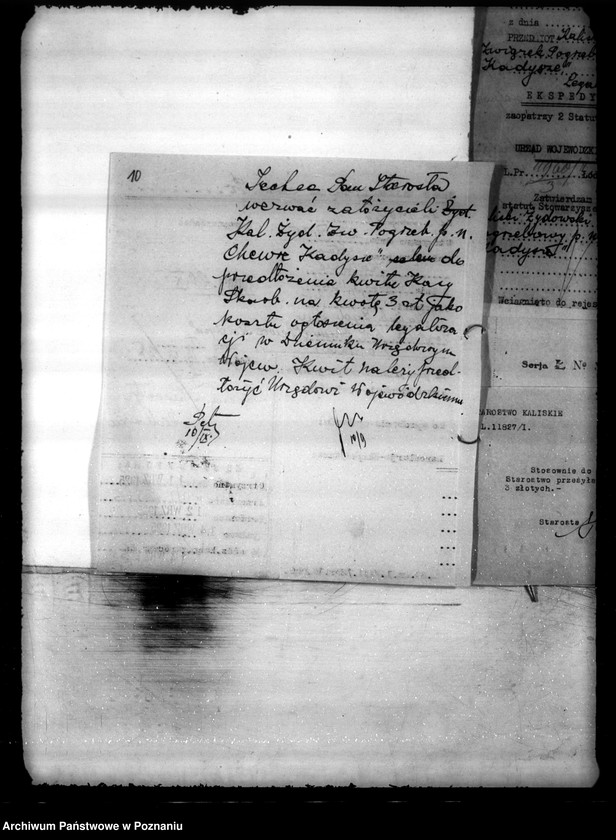 10
Zechce Pan Starosta
wezwać założycieli Żyd.
Kal. Żyd. Zw. Pogrzeb. p. n.
Chewre Kadysze" do
przedłożenia kwitu Kasy
Skarb. na kwotę 3 zł jako
koszta ogłoszenia legaliza
cji w Dzienniku Urzędowym
Wojew. Kwit należy przed-
łożyć Urzędowi Wojewódzkiemu
10/9
z dnia
PRZEDMIOT
Związek Pogrzeb
Kadysze"
EKSPEDY
zaopatrzy 2 Statu
URZĄD WOJEWÓDZK
L.Pr.
Zatwierdzam
statut Stowarzysze
Żydowski
ogrzebowy p. n.
adysze"
Wciągnięto do rejes
Serja Ł №
STAROSTWO KALISKIE
L.11827/1.
Stosownie do
Starostwo przesyła
3 złotych.-
Starosta
Archiwum Państwowe w Poznaniu